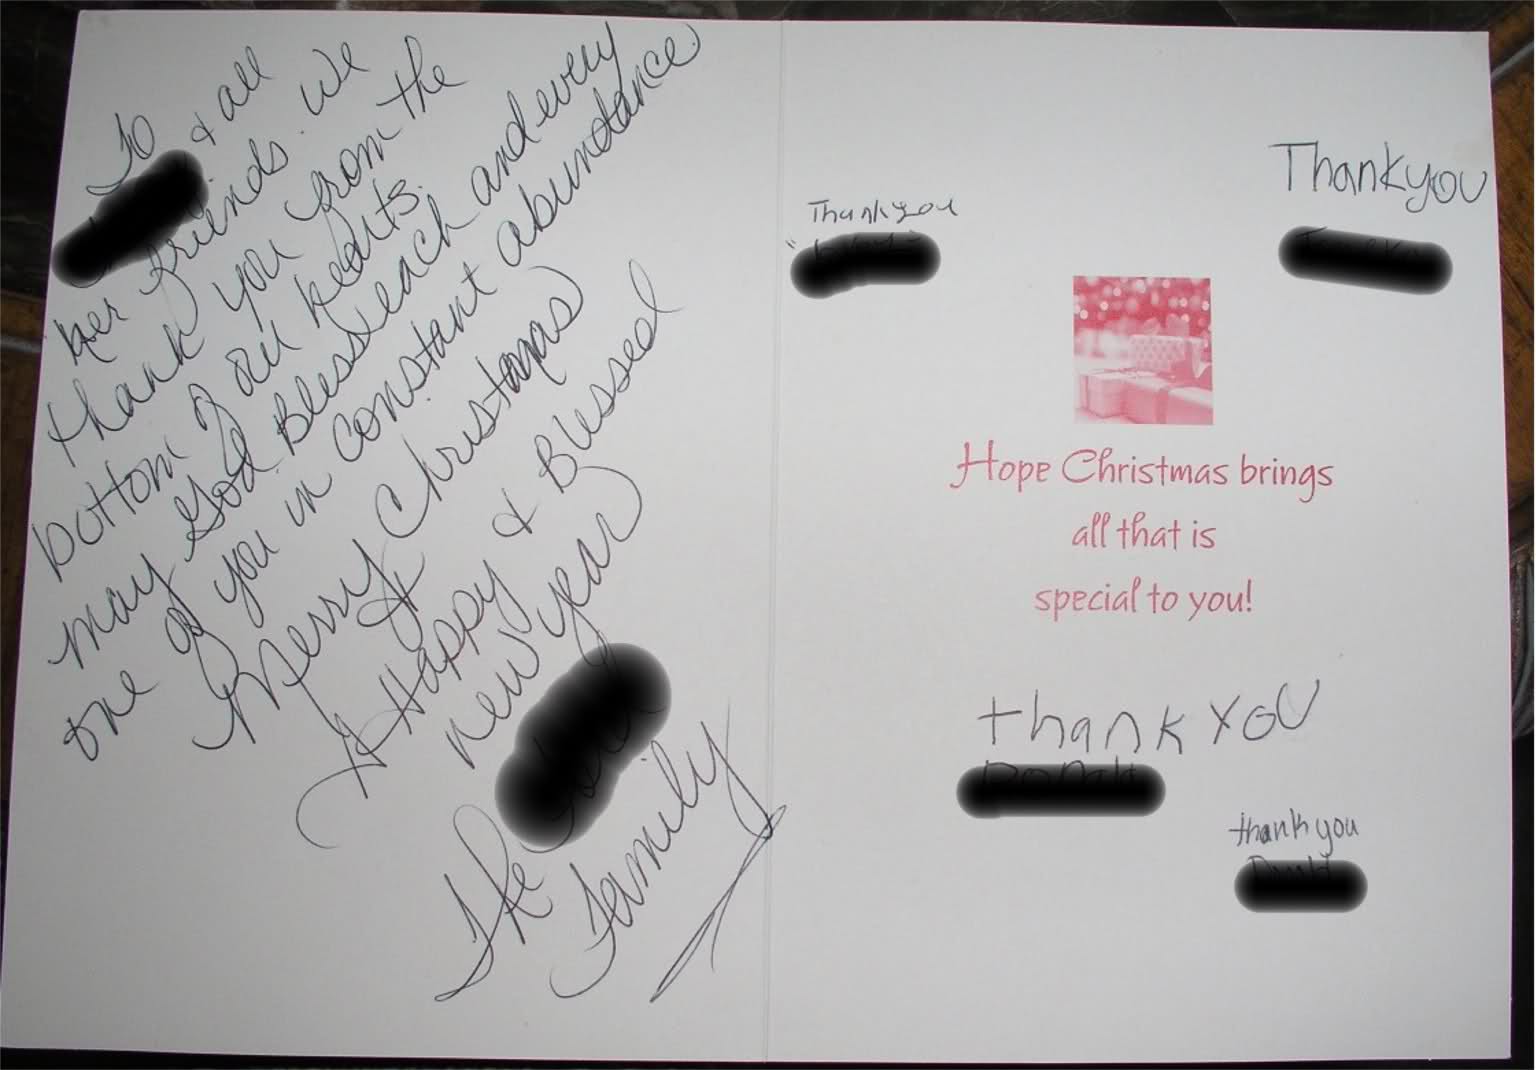 To
& all
her friends. We
thank you from the
bottom of our hearts.
may God Bless each and every
one of you in constant abundance
Merry Christmas
& Happy & Blessed
new year
The
Family
Thankyou
Thankyou
Hope Christmas brings
all that is
special to you!
thank YOU
thank you